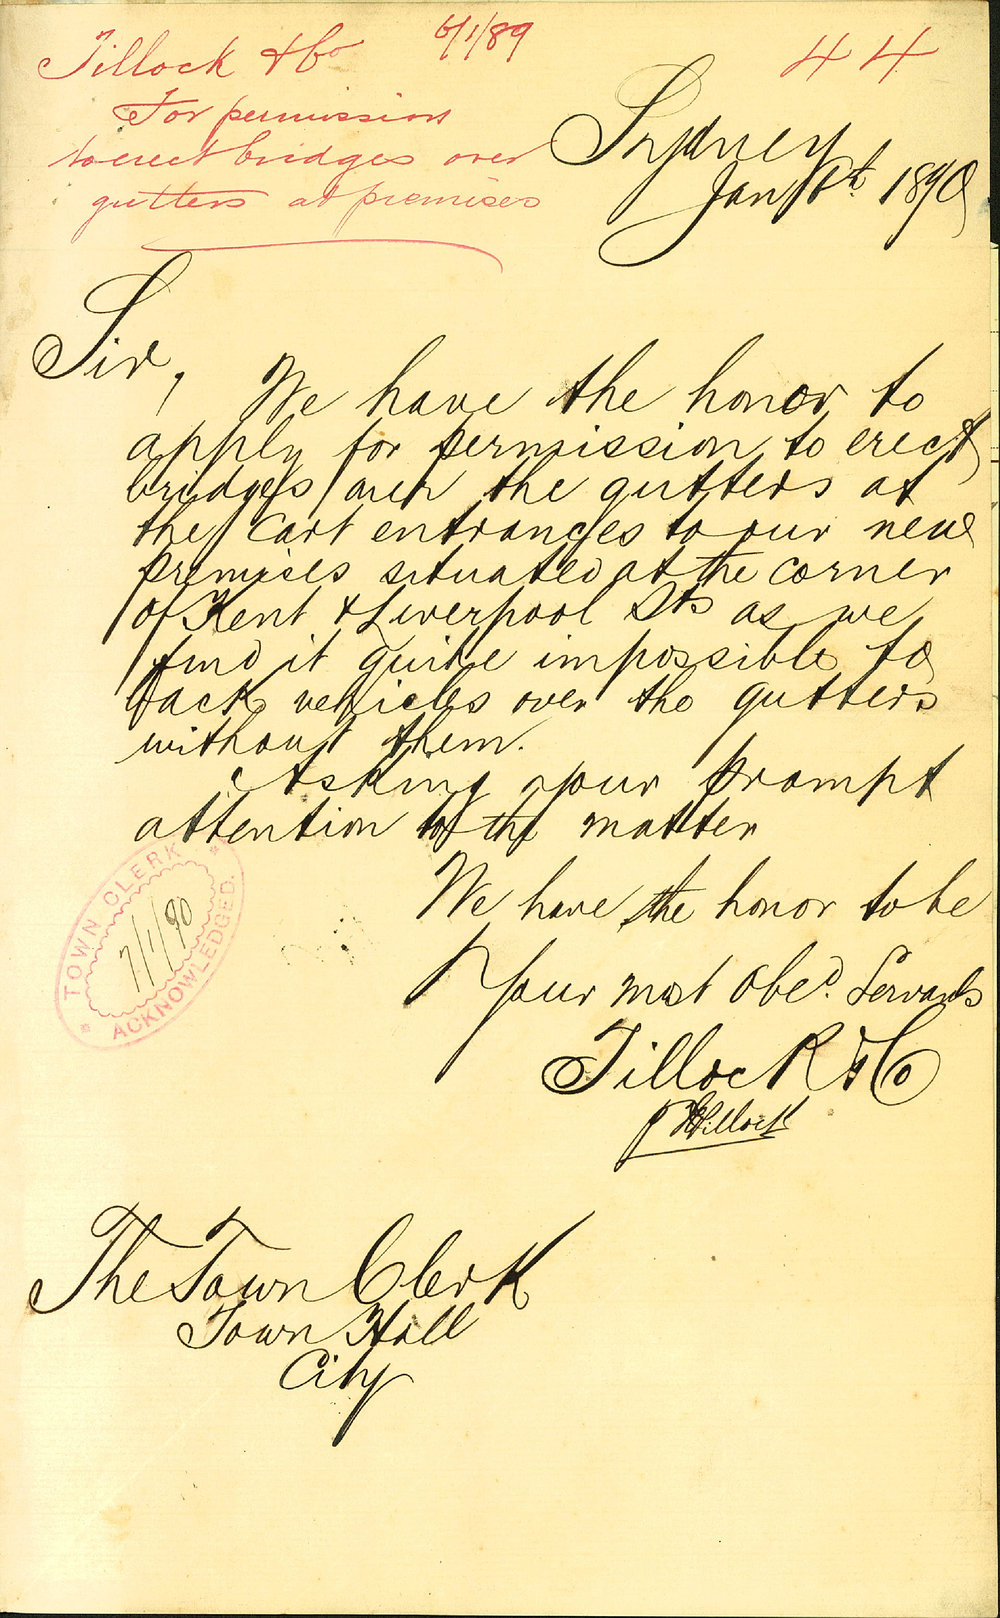 Tillock & Co 6/1/89
44
For permission
to erect bridges over
gutters at premises
Sydney
Jany 6th 1890
Sir,
We have the honor to
apply for permission to erect
bridges over the gutters at
the cart entrances to our new
premises situated at the corner
of Kent & Liverpool Sts as we
find it quite impossible to
back vehicles over the gutters
without them.
Asking your prompt
attention to the matter
We have the honor to be
Your most Obed. Servants
Tillock & Co
Tillock
TOWN CLERK
7/1/90
ACKNOWLEDGED.
The Town Clerk
Town Hall
City